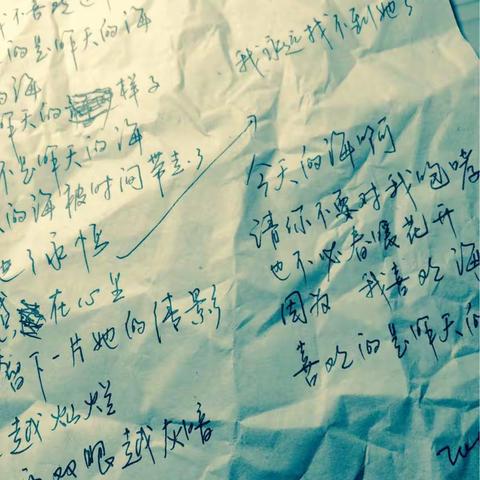 不喜欢
的是昨天的海
海
昨天的样子
不是昨天的海
的海被时间带走了
了永恒
在心坐
留下一片她的倩影
越灿烂
双眼越灰暗
我永远找不到她了
今天的海啊
请你不要对我咆哮
也不必春暖花开
因为 我喜欢海
喜欢的是昨天的